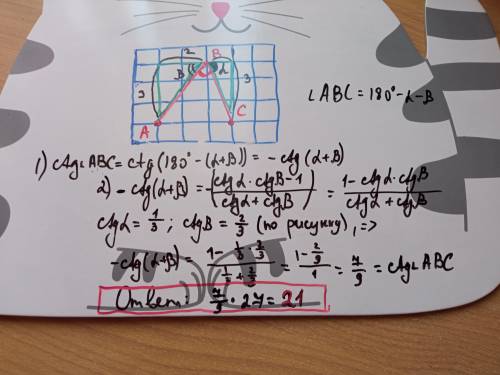 2
B
β
α
3
3
A
C
∠ABC = 180° - α - β
1) ctg∠ABC = ctg(180° - (α+β)) = - ctg(α+β)
2) - ctg(α+β) = -(ctgα · ctgβ - 1 / ctgα + ctgβ) = 1 - ctgα · ctgβ / ctgα + ctgβ
ctgα = 1/3 ; ctgβ = 2/3 (по рисунку), =>
-ctg(α+β) = 1 - 1/3 · 2/3 / 1/3 + 2/3 = 1 - 2/9 / 1 = 7/9 = ctg∠ABC
Ответ: 7/9 · 27 = 21